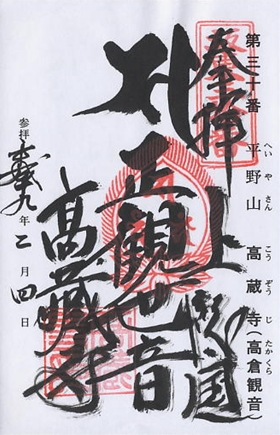 第三十番 平野山 高蔵寺(高倉観音)
へいやさん こうぞうじ たかくら
奉拝
上総国
正観世音
髙藏寺
参拝 九年二月四日